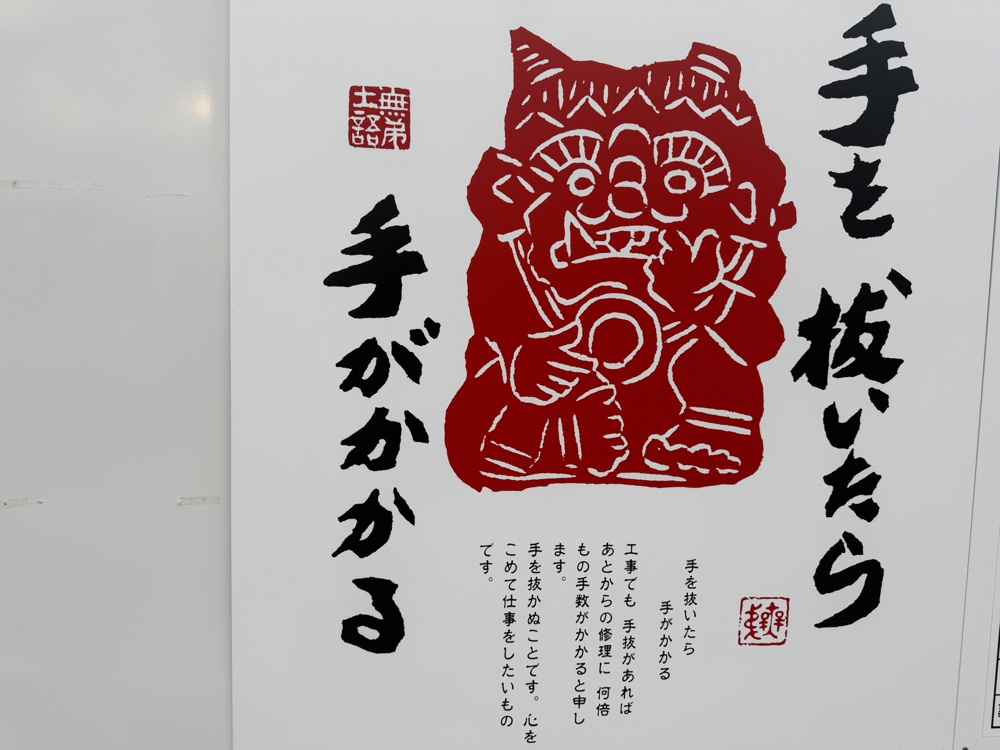 手を抜いたら
手がかかる
無弟
士語
手を抜いたら
手がかかる
工事でも 手抜があれば
あとからの修理に 何倍
もの手数がかかると申し
ます。
手を抜かぬことです。心を
こめて仕事をしたいもの
です。